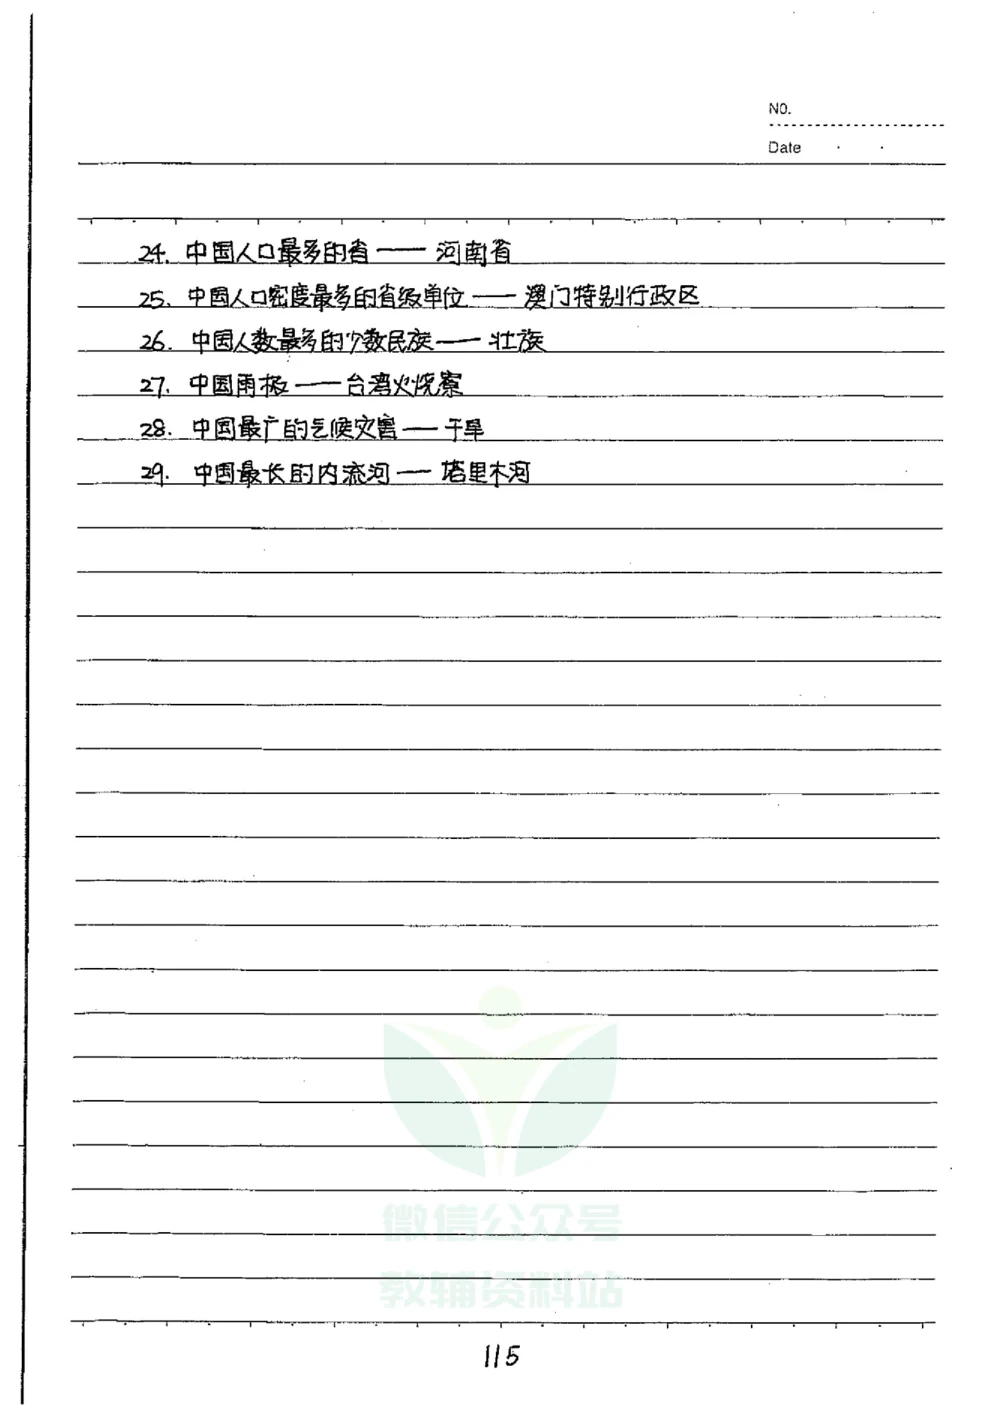 NO.
Date
24. 中国人口最多的省——河南省
25. 中国人口密度最多的省级单位——澳门特别行政区
26. 中国人数最多的少数民族——壮族
27. 中国雨极——台湾火烧寮
28. 中国最广的气候灾害——干旱
29. 中国最长的内流河——塔里木河
微信公众号
教辅资料站
115